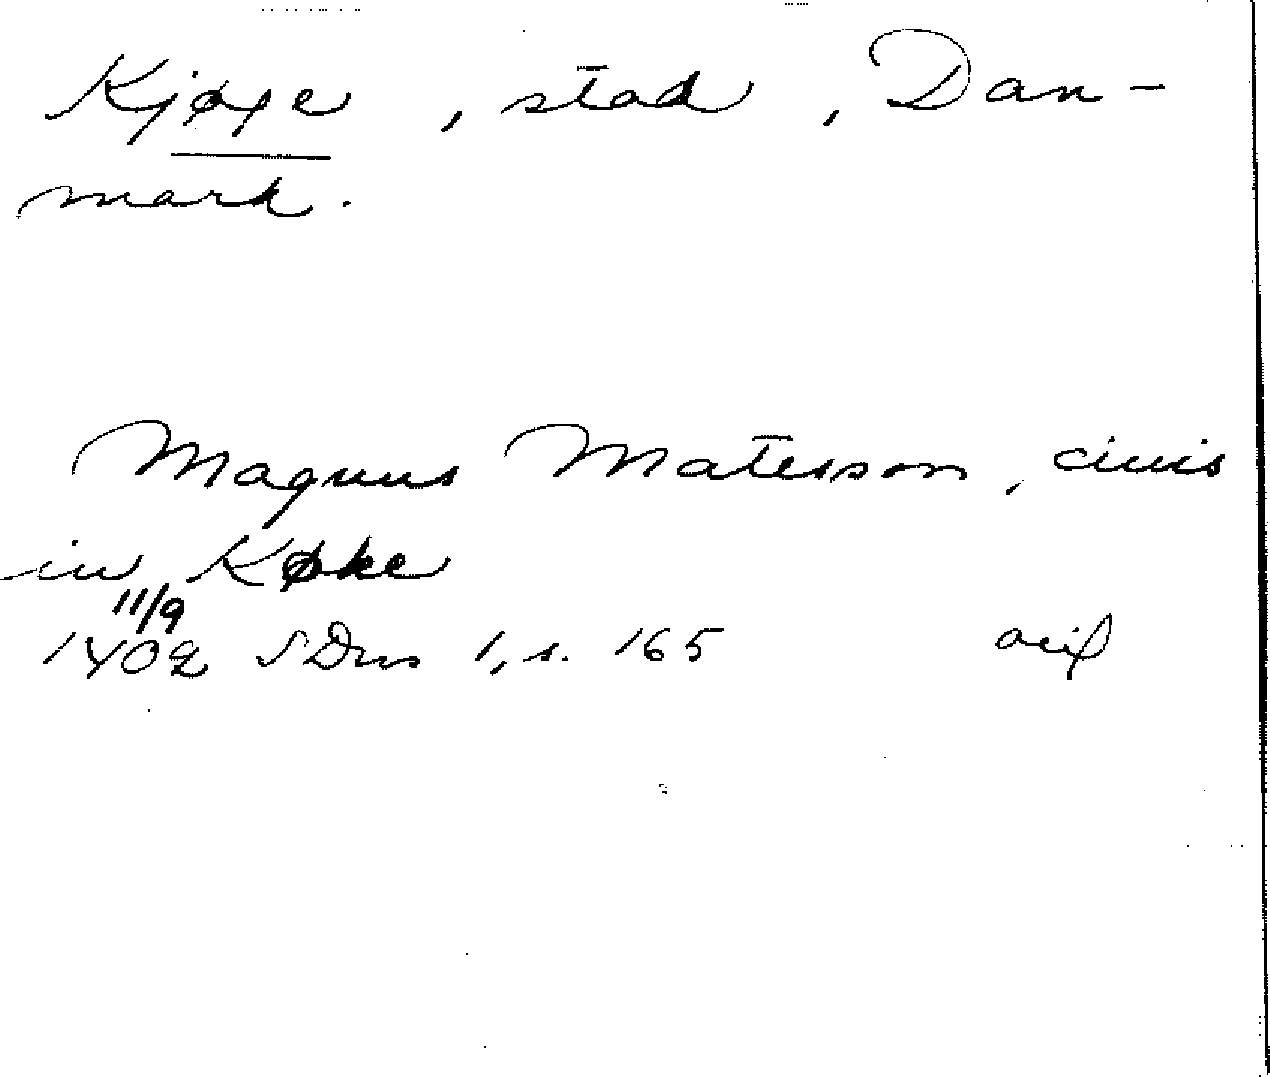 Kjøge, stad, Dan-
mark.
Magnus Matesson, civis
in Køke
11/9
1402 SDns 1, s. 165